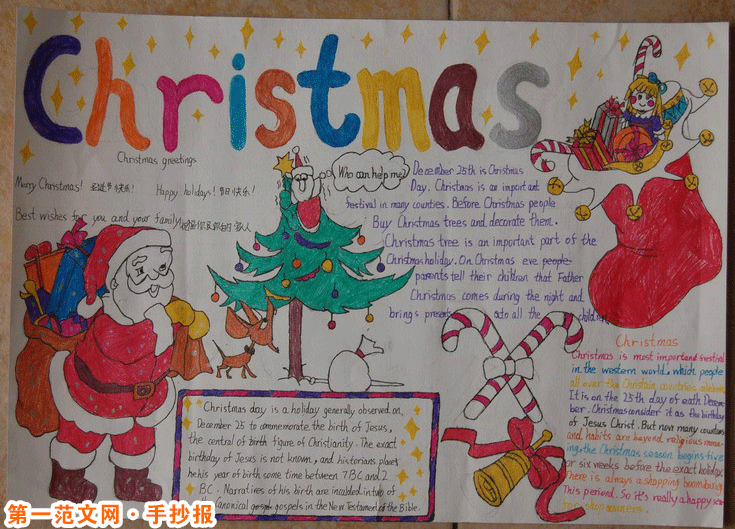 Christmas
Christmas greetings
Merry Christmas! 圣诞节快乐! Happy holidays! 节日快乐!
Best wishes for you and your family 祝福你及你的家人
Who can help me?
December 25th is Christmas
Day. Christmas is an important
festival in many counties. Before Christmas people
Buy Christmas trees and decorate them.
Christmas tree is an important part of the
Christmas holiday. On Christmas eve people
parents tell their children that Father
Christmas comes during the night and
brings presents to all the children
Christmas day is a holiday generally observed on
December 25 to commemorate the birth of Jesus,
the central of birth figure of Christianity. The exact
birthday of Jesus is not known, and historians places
he his year of birth some time between 7 BC and 2
BC. Narratives of his birth are included in two of
the Canonical gospel gospels in the New Testament of the Bible.
Christmas
Christmas is most important festival
in the western world, which people
all over the Christian countries celebrate
It is on the 25th day of each Decem
ber. Christmas consider it as the birthday
of Jesus Christ. But now many countries
and habits are beyond religious mean
ing, the Christmas season begins five
or six weeks before the exact holiday
There is always a shopping boom during
This periend. So it's really a happy sea
shop owners.
第一范文网·手抄报